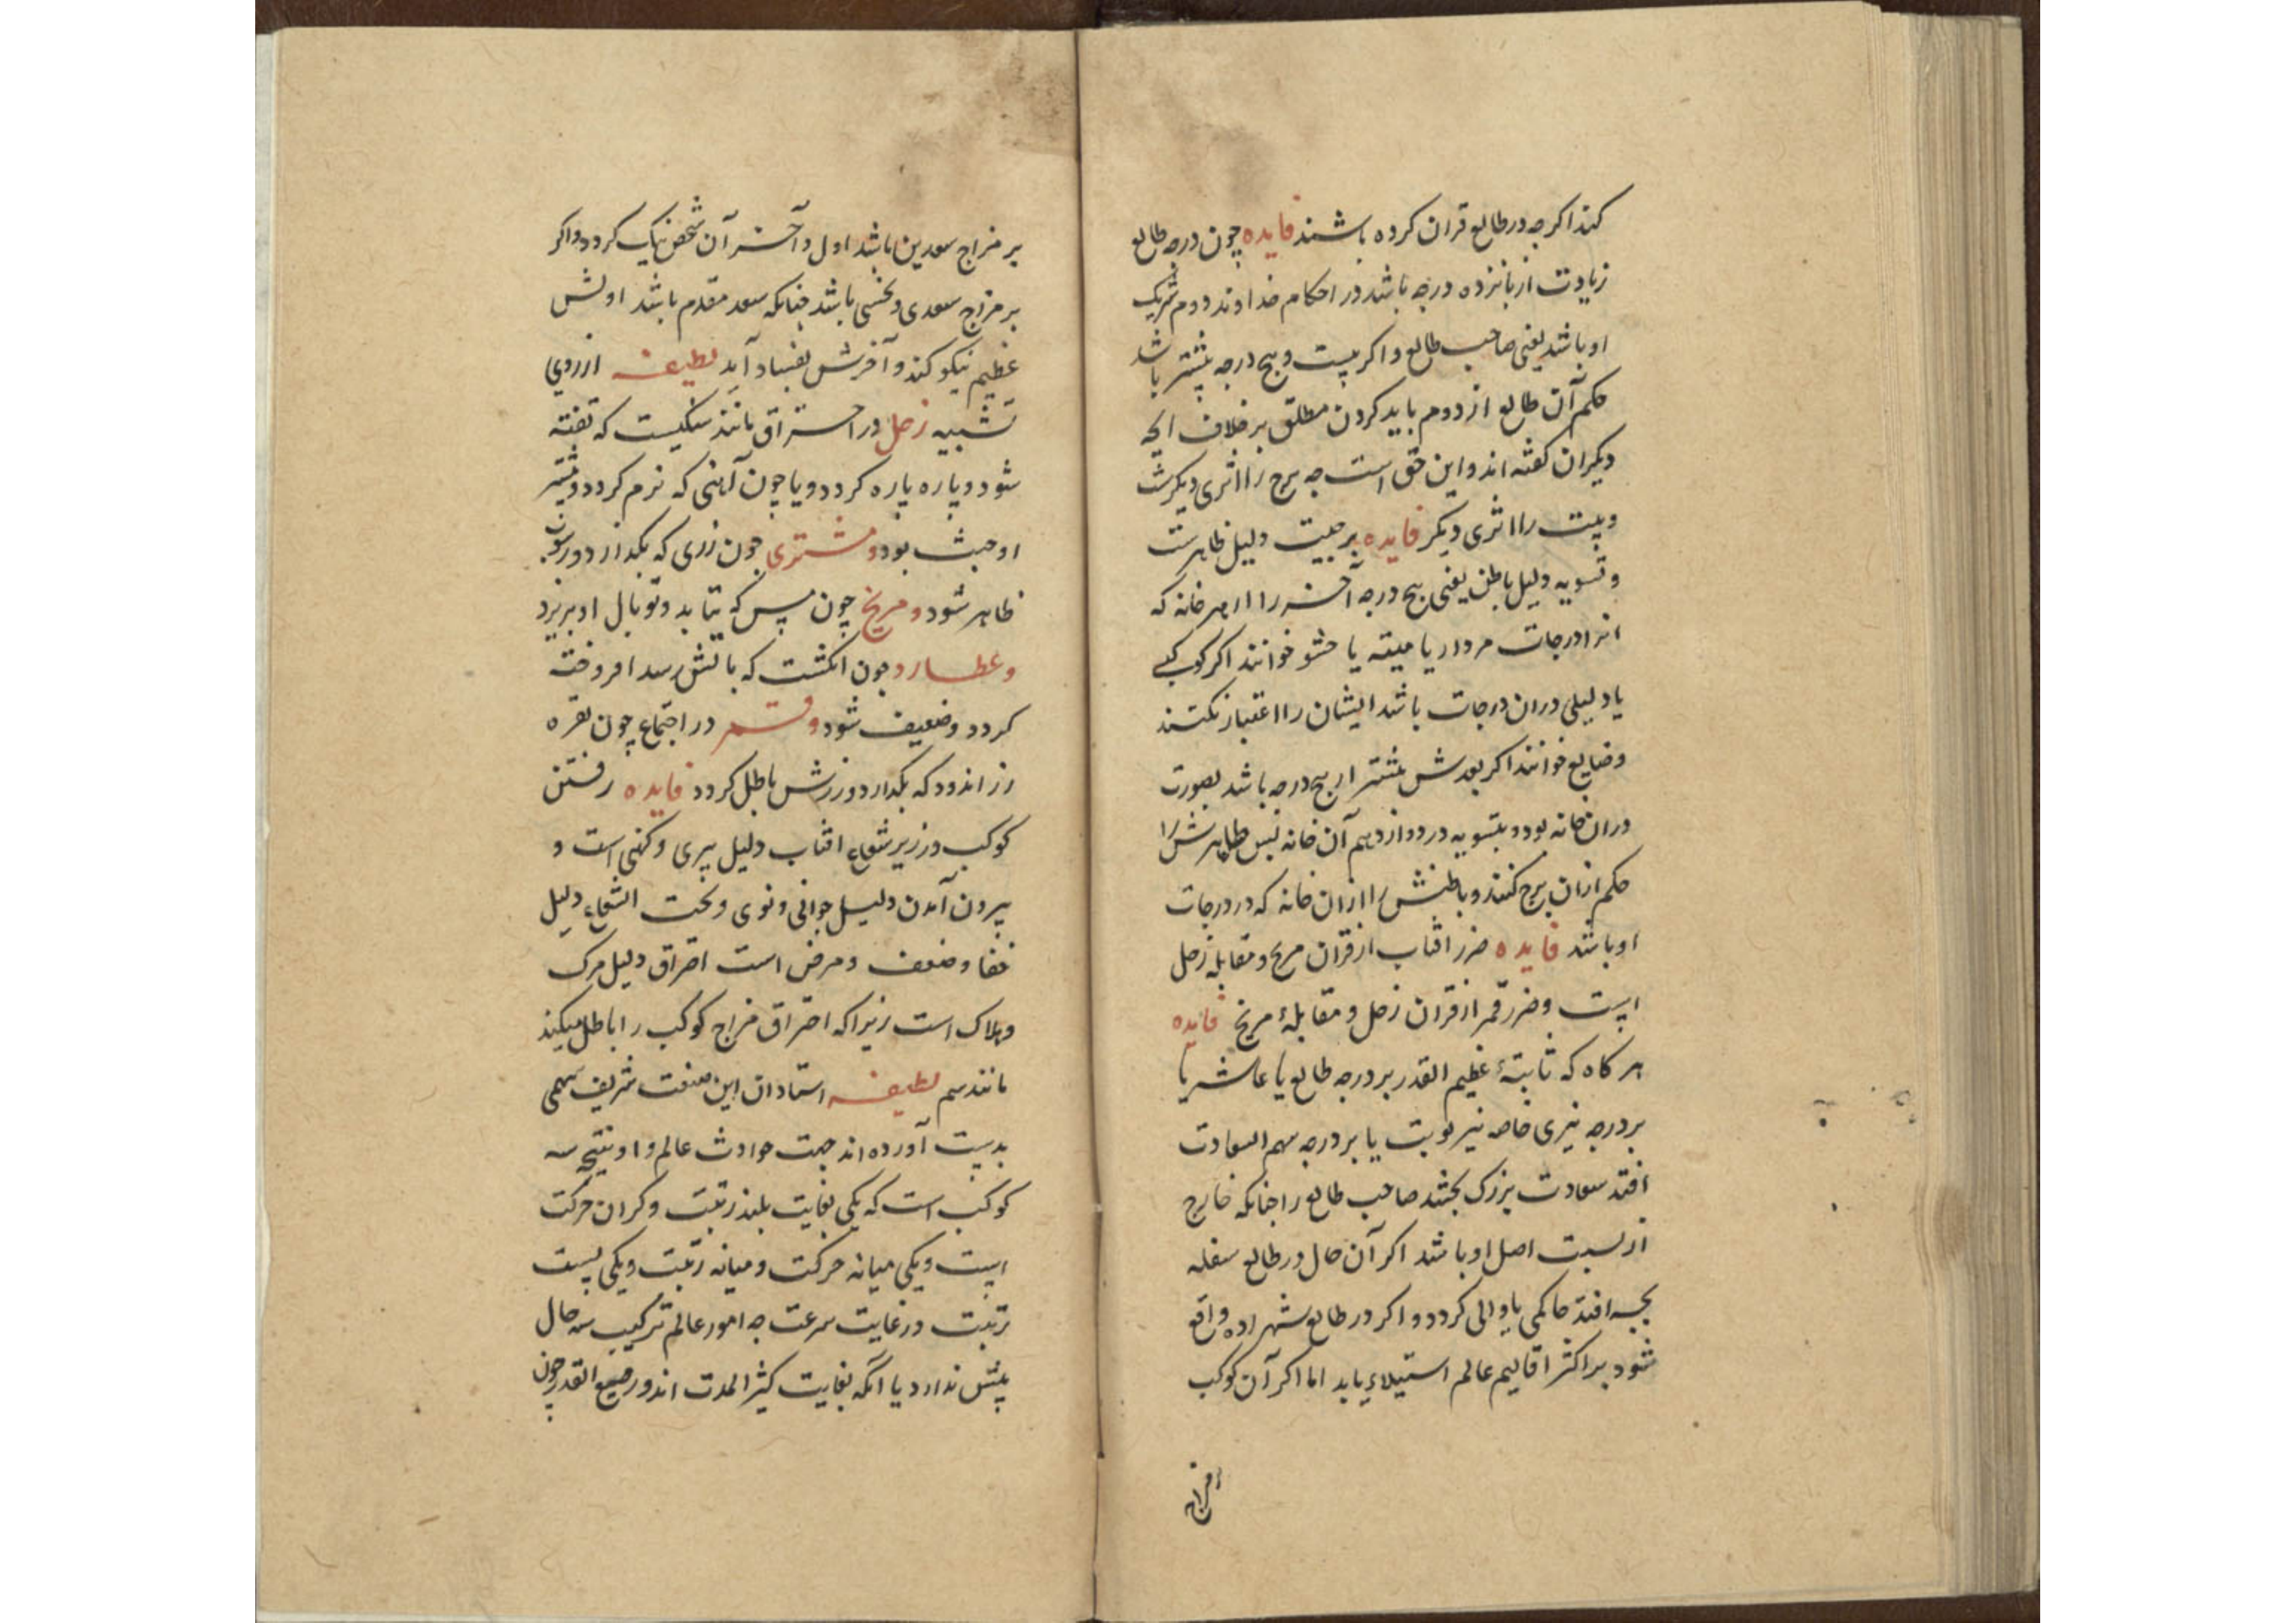 کند اکرجه در طالع قران کرده باشند فایده چون درجه طالع
زیادت از بانزده درجه باشد در احکام خداوند دوم شریک
او باشد یعنی صاحب طالع و اکر بیست و پنج درجه بیشتر باشد
حکم آن طالع از دوم باید کردن مطلق بر خلاف انجه
دیکران کفته اند و این حق است جه برج را اثری دیکرست
و بیت را اثری دیکر فایده دلیل ظاهرست
و تسویه دلیل باطن یعنی پنج درجه آخر را از هر خانه که
انرا درجات مردار یا میته یا حشو خوانند اکر کوکبی
یا دلیلی دران درجات باشد ایشان را اعتبار نکنند
و ضایع خوانند اکر بعدش بیشتر از پنج درجه باشد بصورت
دران خانه بود و بتسویه در دوازدهم آن خانه پس ظاهرش را
حکم ازان برج کنند و باطنش را ازان خانه که در درجات
او باشد فایده ضرر افتاب از قران مریخ و مقابله زحل
است و ضرر قمر از قران زحل و مقابلهٔ مریخ فایده
هرکاه که ثابتهٔ عظیم القدر بر درجه طالع یا عاشر یا
بر درجه نیری خاصه نیر نوبت یا بر درجه سهم السعادت
افتد سعادت بزرک بخشد صاحب طالع را جنانکه خارج
از نسبت اصل او باشد اکر آن حال در طالع سفله
بجه افتد حاکمی یا والی کردد و اکر در طالع شهزاده واقع
شود بر اکثر اقالیم عالم استیلاء یابد اما اکر آن کوکب
بر مزاج سعدین باشد اول و آخر آن شخص نیک کردد و اکر
بر مزاج سعدی و نحسی باشد جنانکه سعد مقدم باشد اولش
عظیم نیکو کند و آخرش بفساد آید لطیفه از روی
تشبیه زحل در احتراق مانند سنکیست که تفته
شود و پاره پاره کردد و یا چون آهنی که نرم کردد و بیشتر
او خبث بود و مشتری چون زری که بکدازد و
ظاهر شود و مریخ چون مس که بتابد و توبال او بریزد
و عطارد چون انکشت که باتش رسد افروخته
کردد و ضعیف شود و قمر در اجتماع چون نقره
زر اندود که بکدازد و زرش باطل کردد فایده رفتن
کوکب در زیر شعاع افتاب دلیل پیری و کهنی است و
بیرون آمدن دلیل جوانی و نوی و تحت الشعاع دلیل
خفا و ضعف و مرض است احتراق دلیل مرک
و هلاک است زیرا که احتراق مزاج کوکب را باطل میکند
مانند سم لطیفه استادان این صنعت شریف سهمی
بدست آورده اند جهت حوادث عالم و او نتیجه سه
کوکب است که یکی بغایت بلند رتبت و کران حرکت
است و یکی میانه حرکت و میانه رتبت و یکی پست
رتبت در غایت سرعت جه امور عالم ترکیب سه حال
بیش ندارد یا آنکه بغایت کثیر المدت اند و رفیع القدر چون